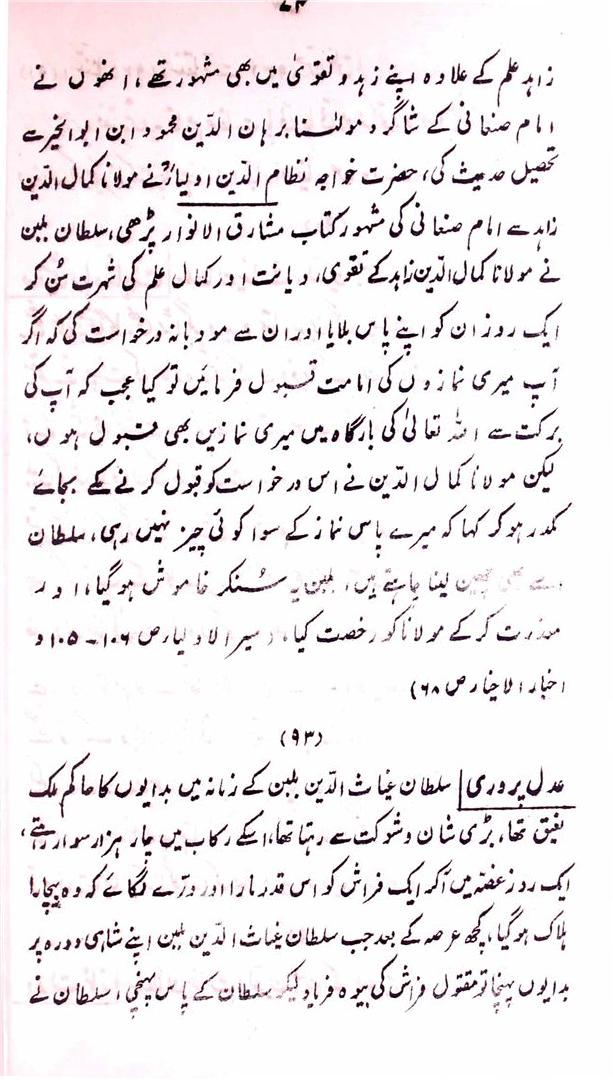 ۷۴
زاہد علم کے علاوہ اپنے زہد و تقویٰ میں بھی مشہور تھے، انھوں نے
امام صنعانی کے شاگرد مولٰنا برہان الدّین محمود ابن ابوالخیر سے
تحصیل حدیث کی، حضرت خواجہ نظام الدّین اولیاءؒ نے مولانا کمال الدّین
زاہد سے امام صنعانی کی مشہور کتاب مشارق الانوار پڑھی، سلطان بلبن
نے مولانا کمال الدّین زاہد کے تقویٰ، دیانت اور کمال علم کی شہرت سُن کر
ایک روز ان کو اپنے پاس بلایا اور ان سے مودبانہ درخواست کی کہ اگر
آپ میری نمازوں کی امامت قبول فرمائیں تو کیا عجب کہ آپ کی
برکت سے اللہ تعالیٰ کی بارگاہ میں میری نمازیں بھی قبول ہوں،
لیکن مولانا کمال الدّین نے اس درخواست کو قبول کرنے کے بجائے
مکدر ہو کر کہا کہ میرے پاس نماز کے سوا کوئی چیز نہیں رہی، سلطان
اسے بھی چھین لینا چاہتے ہیں، بلبن یہ سُنکر خاموش ہو گیا، اور
معذرت کر کے مولانا کو رخصت کیا، (سیر الاولیاء ص ۱۰۶-۱۰۵ و
اخبار الاخیار ص ۶۸)
(۹۳)
عدل پروری | سلطان غیاث الدّین بلبن کے زمانہ میں بدایوں کا حاکم ملک
بقیق تھا، بڑی شان و شوکت سے رہتا تھا، اسکے رکاب میں چار ہزار سوار رہتے،
ایک روز غصّہ میں آکر ایک فراش کو اس قدر مارا اور درّے لگائے کہ وہ بیچارا
ہلاک ہو گیا، کچھ عرصہ کے بعد جب سلطان غیاث الدّین بلبن اپنے شاہی دورہ پر
بدایوں پہنچا تو مقتول فراش کی بیوہ فریاد لیکر سلطان کے پاس پہنچی، سلطان نے